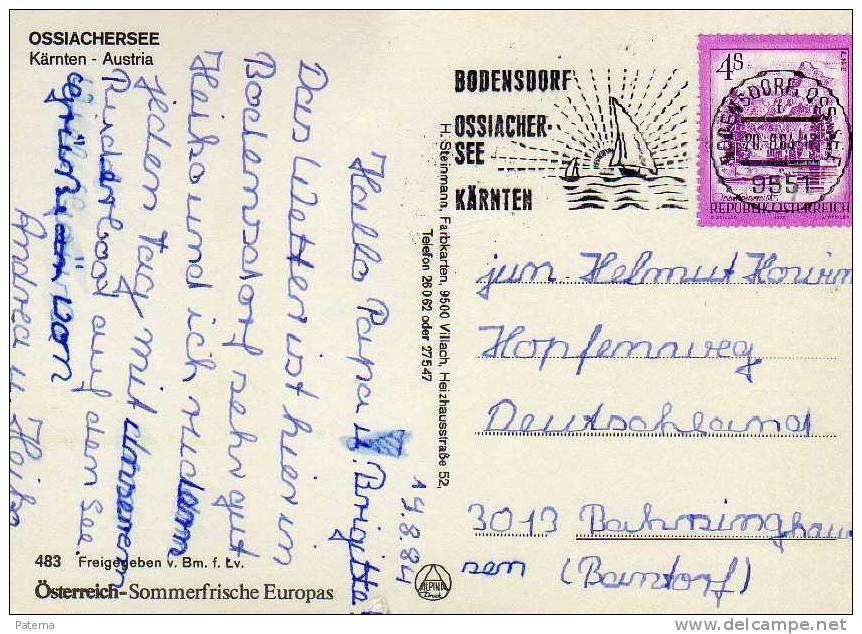 OSSIACHERSEE
Kärnten - Austria
19.8.84
Hallo Papa u. Brigitte!
Das Wetter ist hier in
Bodensdorf sehr gut
Heiko und ich rudern
jeden Tag mit unserem
Ruderboot auf den See.
Andrea u. Heiko
483 Freigegeben v. Bm. f. Lv.
Österreich-Sommerfrische Europas
H. Steinmann, Farbkarten, 9500 Villach, Heizhausstraße 52,
Telefon 26062 oder 27547
ALPINA
Druck
BODENSDORF
OSSIACHER-
SEE
KÄRNTEN
4S
9551
REPUBLIK ÖSTERREICH
jun. Helmut
Hopfenweg
Deutschland
3013 Bahrsinghau
sen (Bantorf)
Paterna
www.delcampe.net